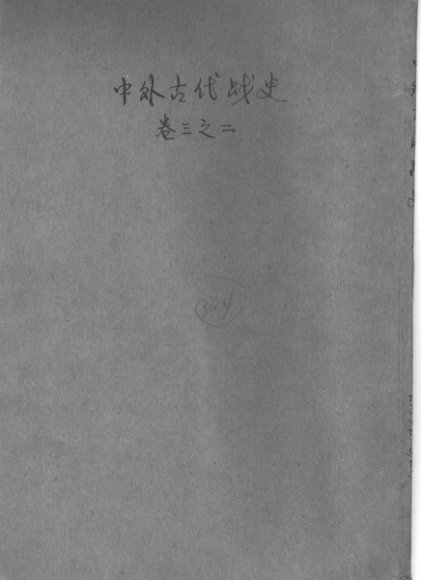 中外古代战史
卷三之二
324